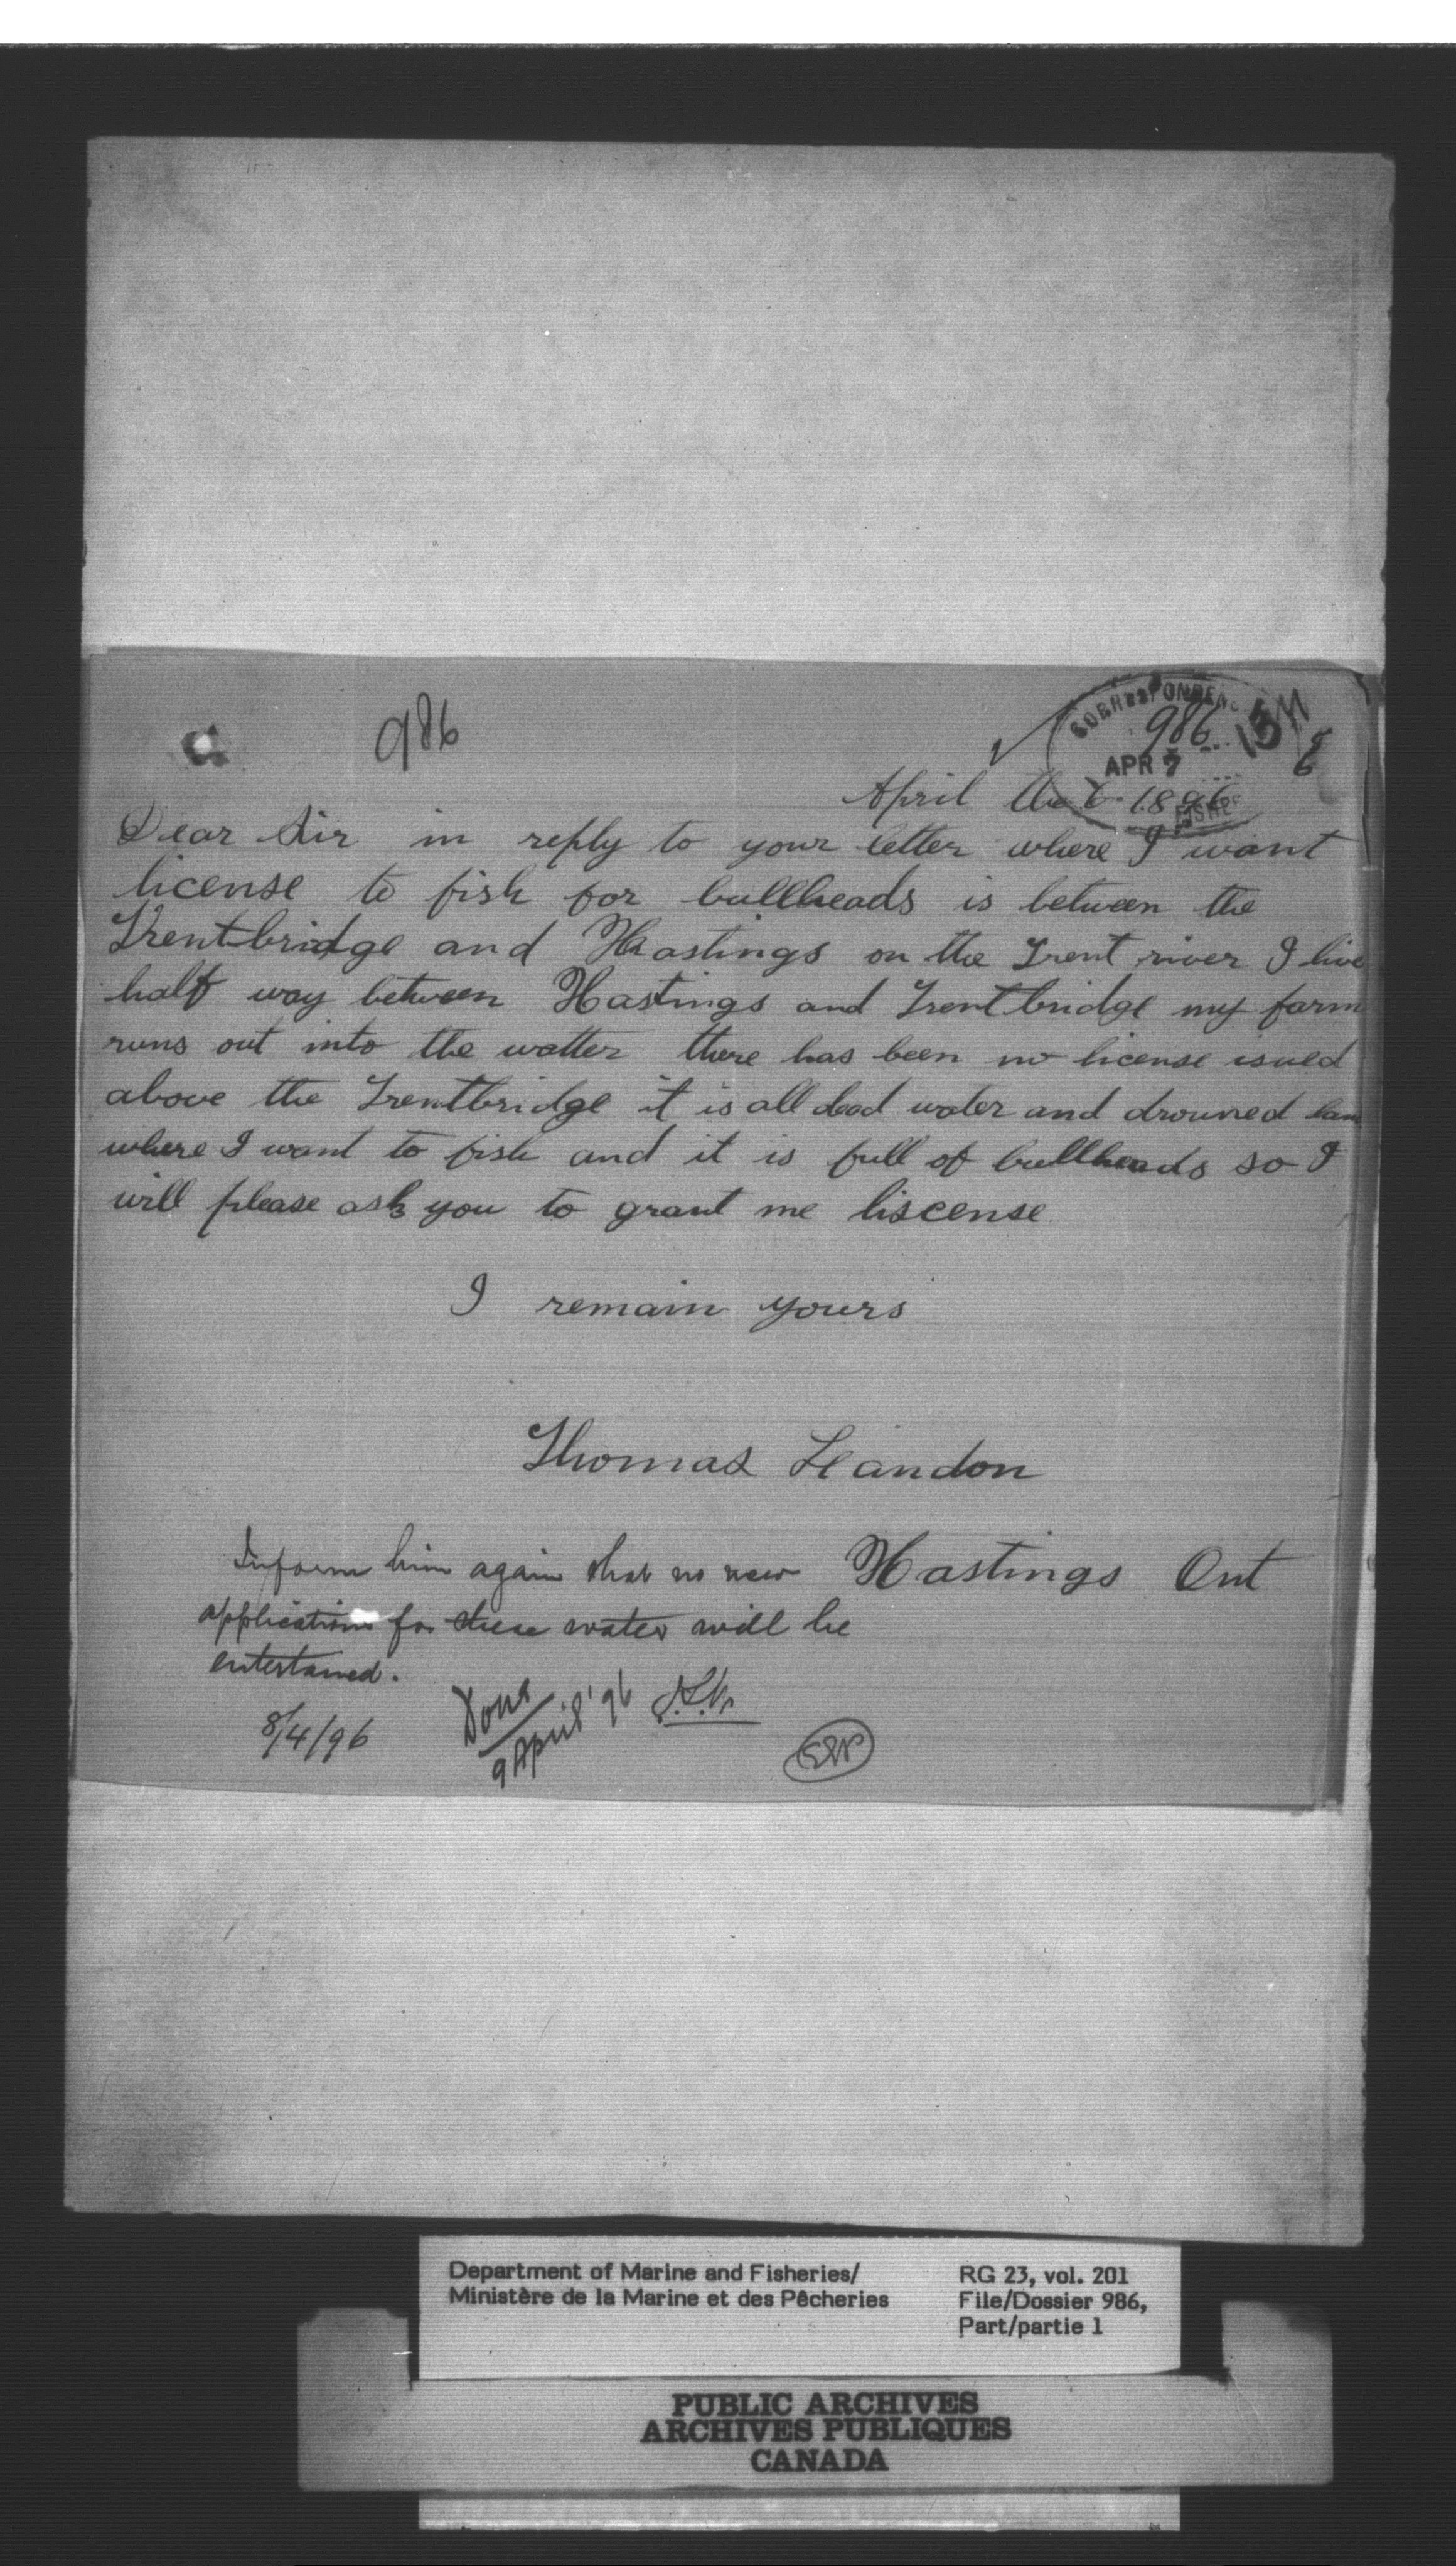 986
CORRESPONDENCE
986
1511
APR 7
April the 6 1896
Dear Sir in reply to your letter where I want
license to fish for bullheads is between the
Trentbridge and Hastings on the Trent river I live
half way between Hastings and Trentbridge my farm
runs out into the watter there has been no license issued
above the Trentbridge it is all dead water and drowned lan
where I want to fish and it is full of bullheads so I
will please ask you to grant me liscense
I remain yours
Thomas Landon
Hastings Ont
Inform him again that no new
applications for these waters will be
entertained.
8/4/96
Done
9 April '96
Department of Marine and Fisheries/
Ministère de la Marine et des Pêcheries
RG 23, vol. 201
File/Dossier 986,
Part/partie 1
PUBLIC ARCHIVES
ARCHIVES PUBLIQUES
CANADA